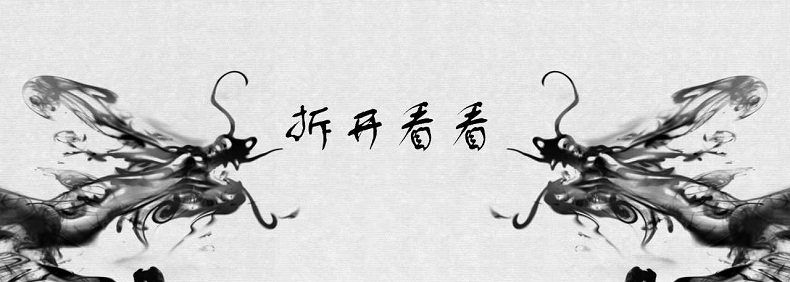 拆开看看